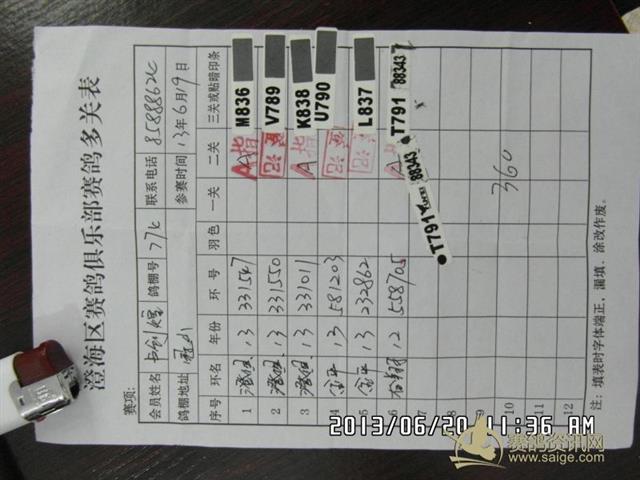 澄海区赛鸽俱乐部赛鸽多关表
赛项:
会员姓名 鸽棚号 77k 联系电话
鸽棚地址 参赛时间 13年6月19日
序号 环名 年份 环号 羽色 一关 二关 三关或贴暗印条
1 澄Q 13 331547 M836
2 澄Q 13 331550 V789
3 澄Q 13 331011 K838
4 13 581203 U790
5 13 232862 L837
6 12 558705 T791 88343
T791 88343
7
8
9
10 360
11
12
注:填表时字体端正,漏填、涂改作废。
2013/06/20 11:36 AM
赛鸽资讯网
www.saige.com